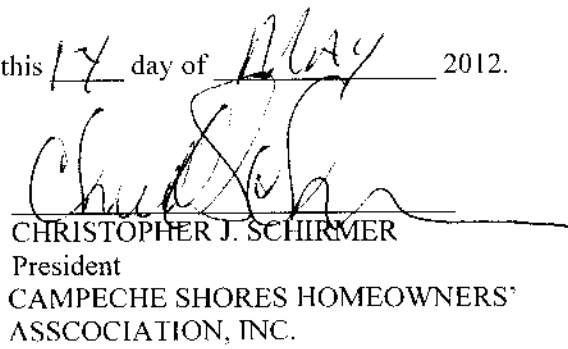 this 14 day of May 2012.
CHRISTOPHER J. SCHIRMER
President
CAMPECHE SHORES HOMEOWNERS'
ASSCOCIATION, INC.